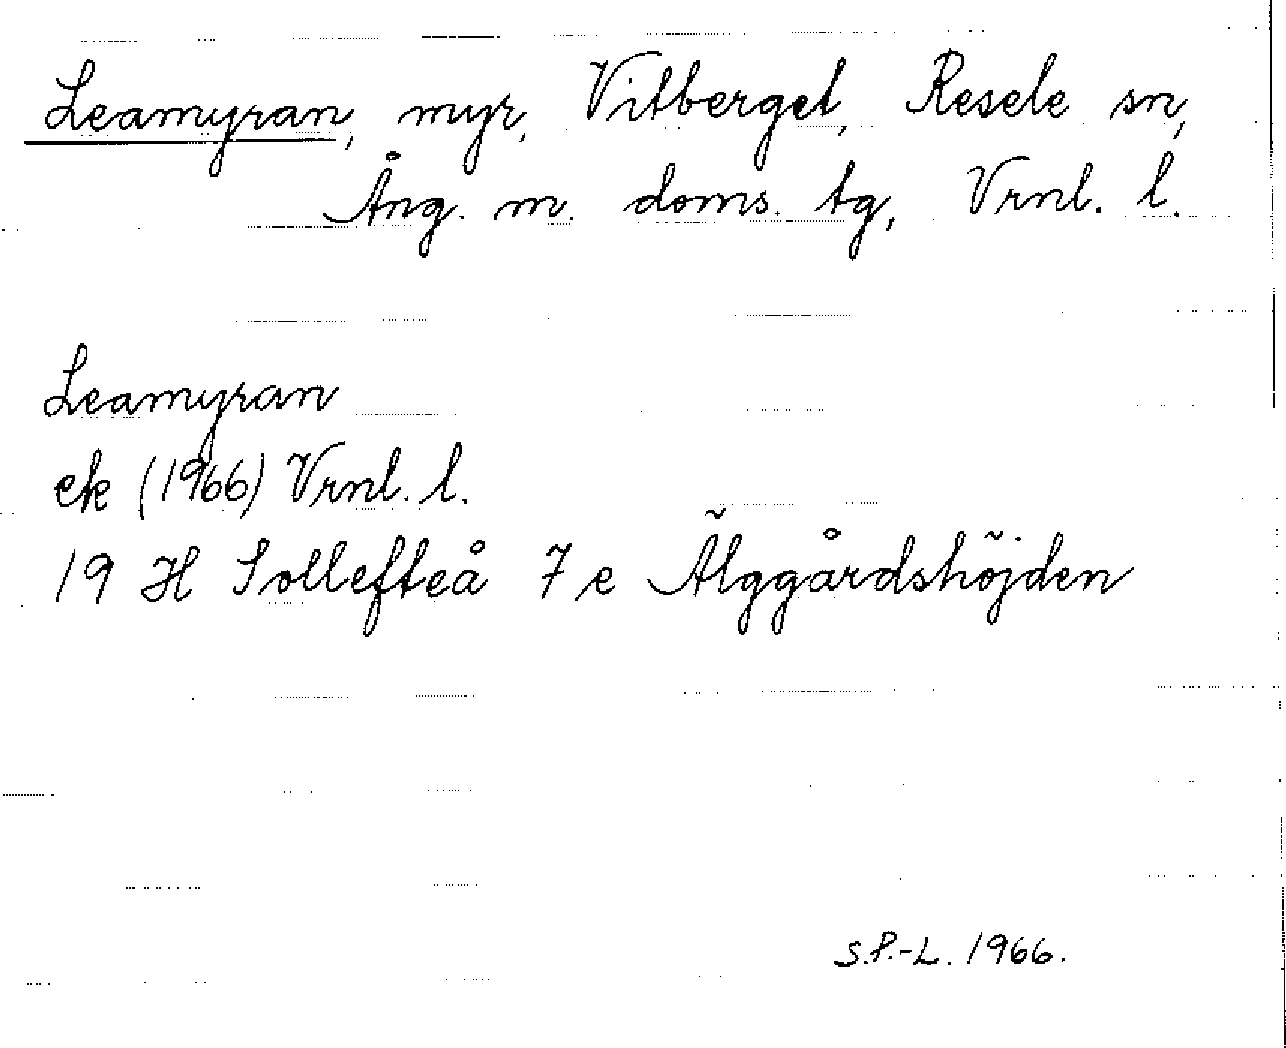 Leamyran, myr, Vitberget, Resele sn,
Ång. m. doms. tg, Vrnl. l.
Leamyran
ek (1966) Vrnl. l.
19 H Sollefteå 7 e Älggårdshöjden
S.P.-L. 1966.